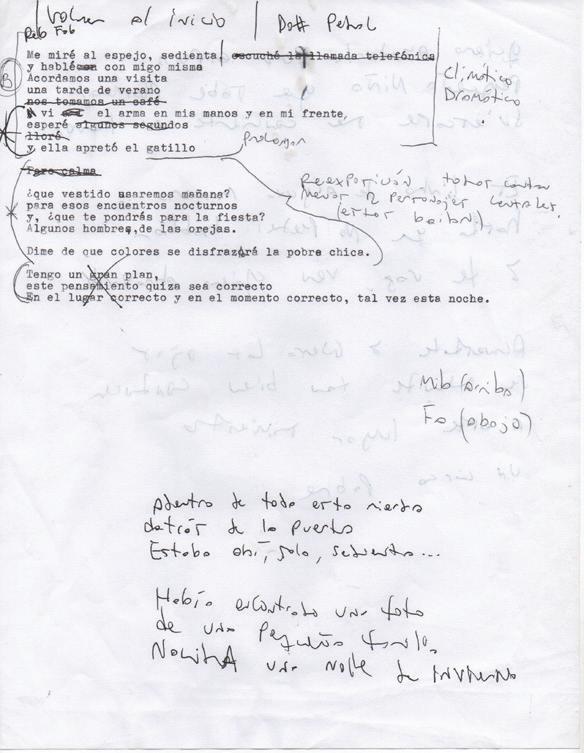 Volver al inicio / Dött Petrol
Reb Fab
Me miré al espejo, sedienta, escuché la llamada telefónica
y hablé con migo misma
Acordamos una visita
B
una tarde de verano
nos tomamos un café
vi el arma en mis manos y en mi frente,
esperé algunos segundos
lloré
y ella apretó el gatillo
Climático
Dramático
Prolongan
Para calma
¿que vestido usaremos mañana?
para esos encuentros nocturnos
y, ¿que te pondrás para la fiesta?
Algunos hombres, de las orejas.
Reexposición
menor 2 personajes centrales
Dime de que colores se disfrazará la pobre chica.
Tengo un gran plan,
este pensamiento quiza sea correcto
En el lugar correcto y en el momento correcto, tal vez esta noche.
Mib (arriba)
Fa (abajo)
Adentro de toda esta mierda
detrás de la puerta
Estaba ahí, sola, sedienta...
Había encontrado una foto
de una pequeña familia,
una noche de invierno